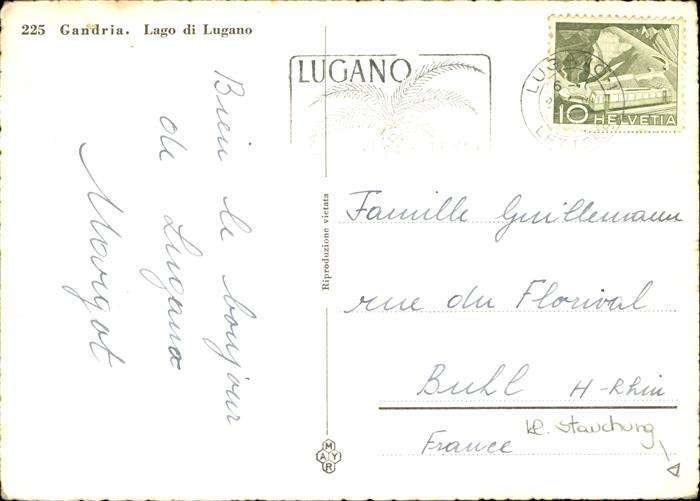 225 Gandria. Lago di Lugano
LUGANO
LUGANO 1
10 HELVETIA
Bien le bonjour
de Lugano
Margot
Riproduzione vietata
Famille Guillemann
rue du Florival
Buhl H-Rhin
France
kl. Stauchung
MAYR